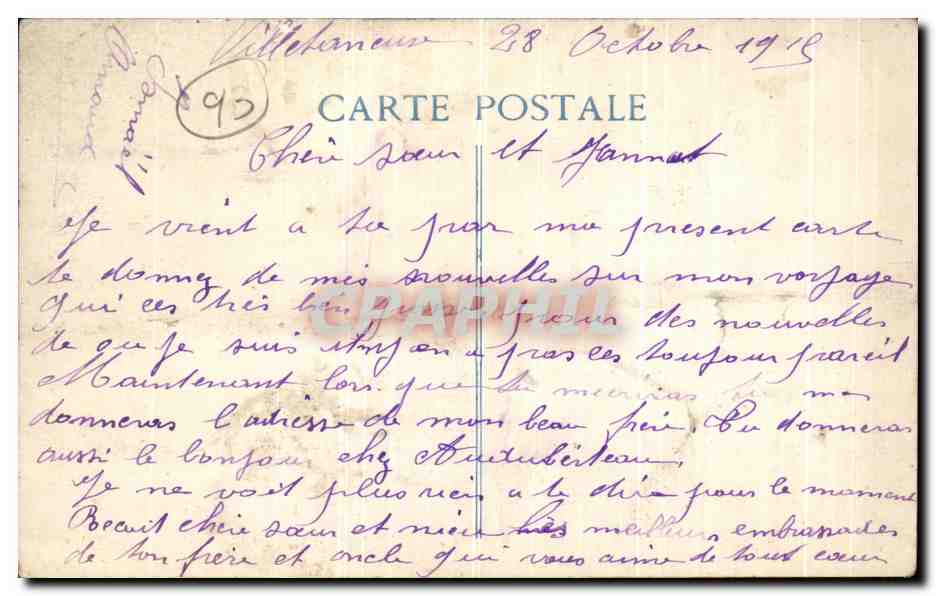 Villetaneuse 28 Octobre 1915
90
CARTE POSTALE
Chère sœur et Jannot
Je vient a toi par ma present carte
te donnez de mes nouvelles sur mon voyage
qui ces très bien passé pour des nouvelles
de ou je suis il n'y en a pas ces toujour pareil
Maintenant lors que tu mecriras tu me
donneras l'adresse de mon beau frère. Tu donneras
aussi le bonjour chez Auduberteau.
Je ne voit plus rien a te dire pour le moment
Recoit chère sœur et nièce les meilleurs embrassades
de ton frère et oncle qui vous aime de tout cœur
CPAPHIL